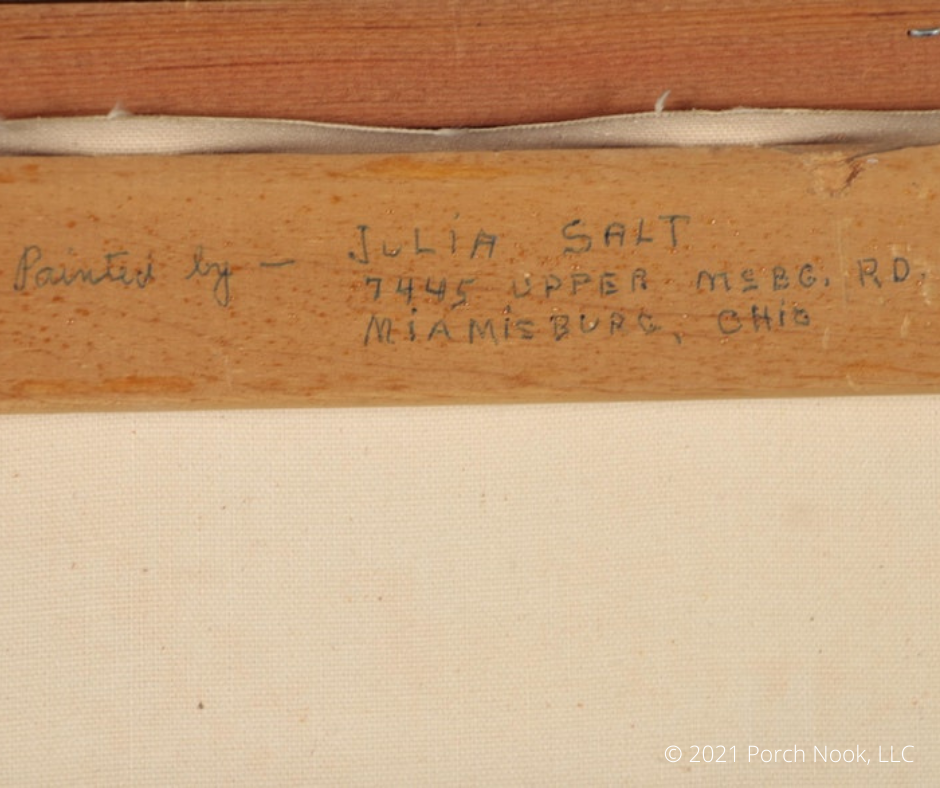 Painted by — JULIA SALT
7445 UPPER MSBG. RD.
MIAMISBURG, OHIO
© 2021 Porch Nook, LLC